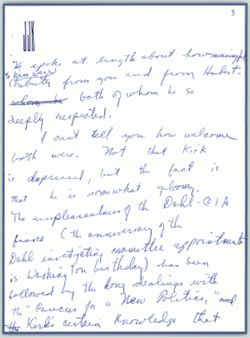 3
He spoke at length about how meaningful
& sincere
tributes from you and from Herbert
both of whom he so
deeply respected.
I can't tell you how welcome
both were. Not that Kirk
is depressed, but the fact is
that he is somewhat gloomy.
The unpleasantness of the Dahl-CIA
(the anniversary of the
Dahl investigating committee appointment
is Washington birthday) has been
followed by the long dealings with
the "Caucus for a New Politics," and
Kirk's certain knowledge that